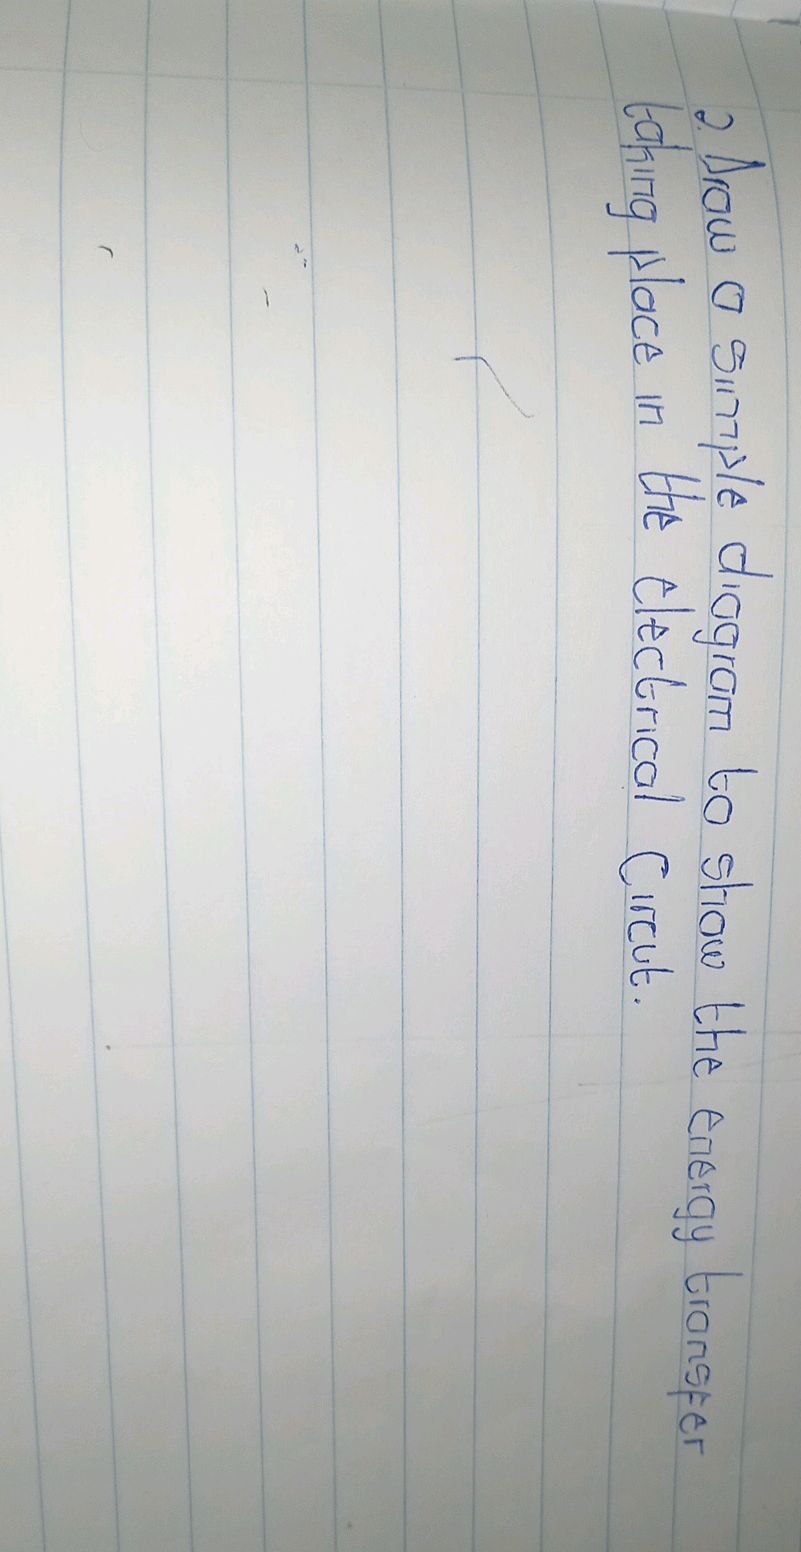 2. Draw a simple diagram to show the energy transfer
taking place in the electrical Circut.